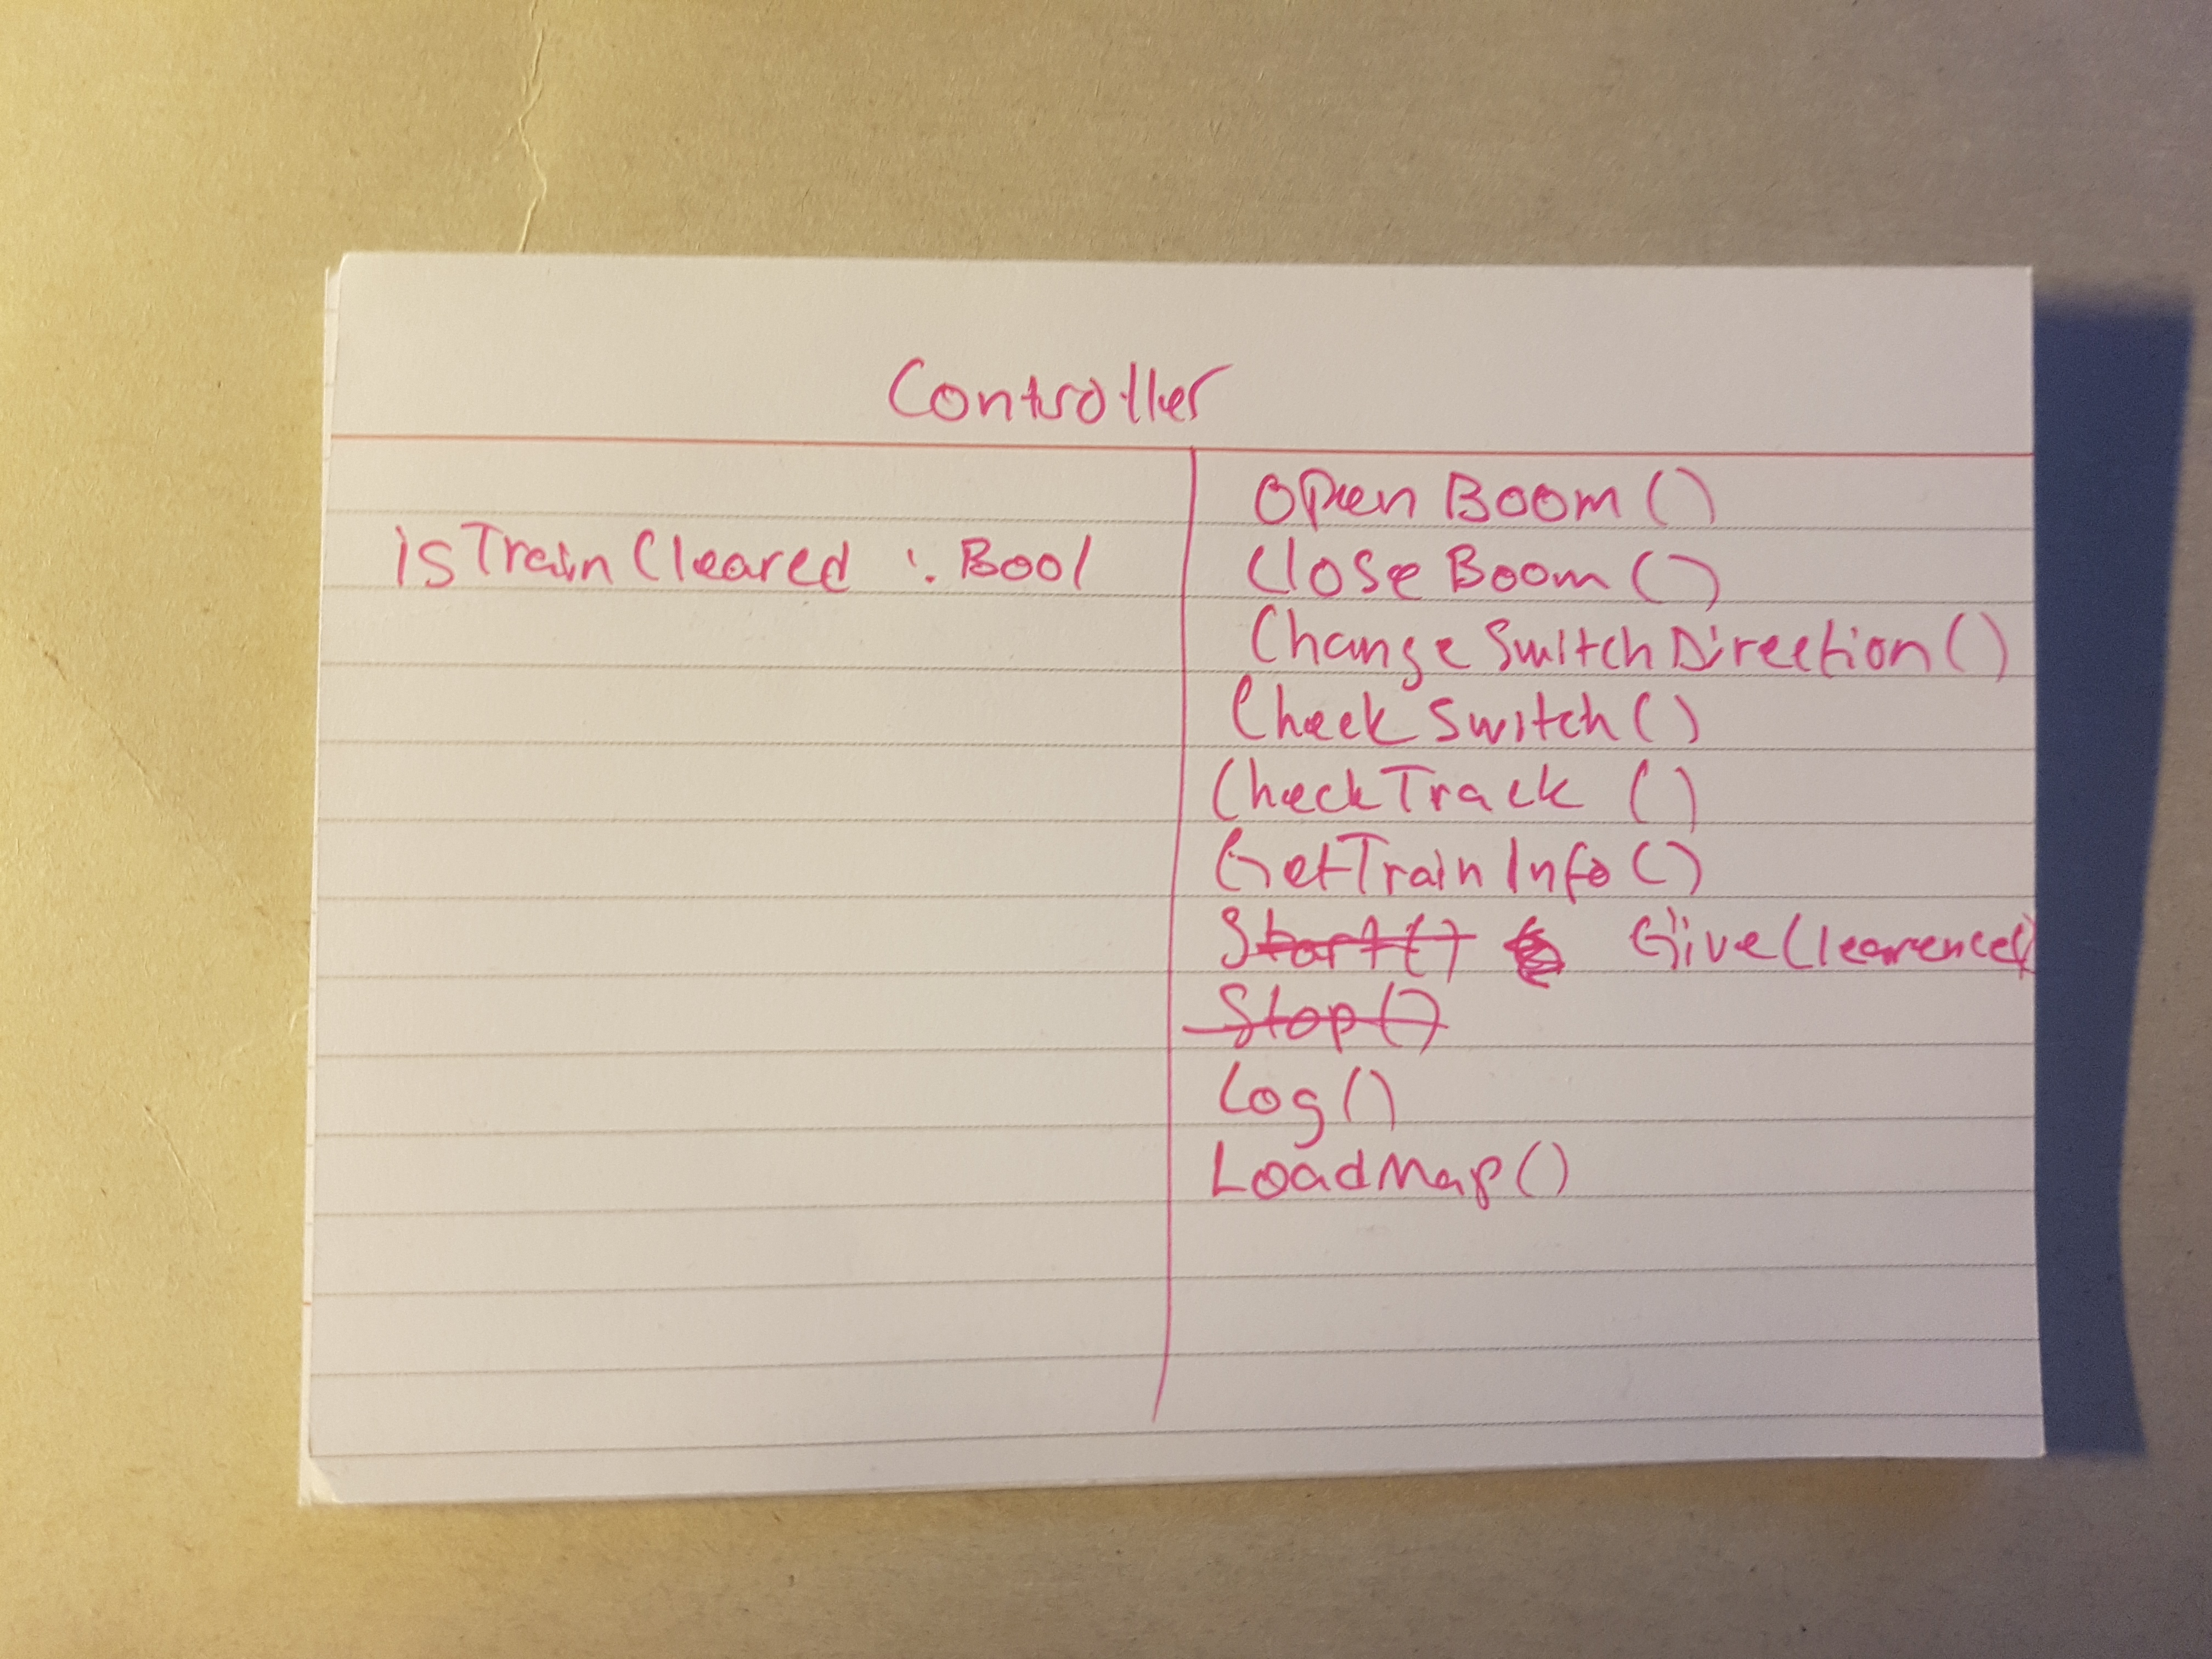 Controller
isTrainCleared : Bool
OpenBoom()
CloseBoom()
ChangeSwitchDirection()
CheckSwitch()
CheckTrack()
GetTrainInfo()
Start() GiveClearence()
Stop()
Log()
LoadMap()